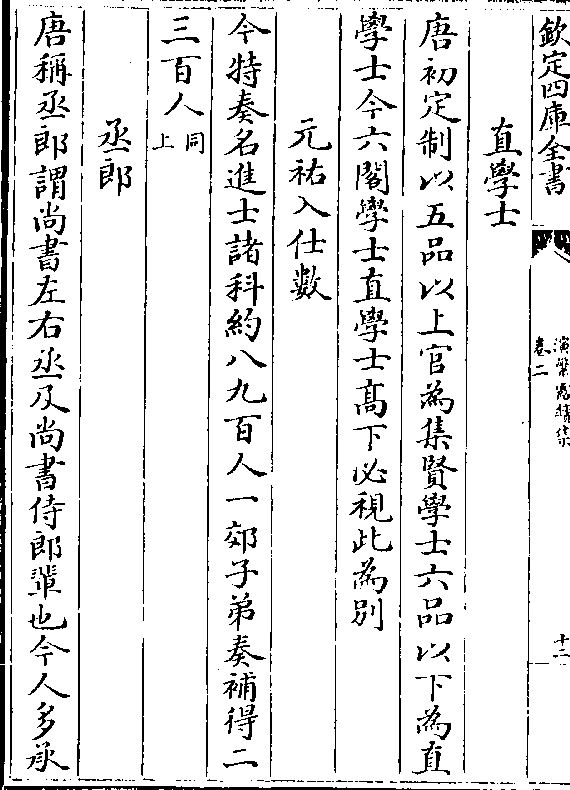 欽定四庫全書
演繁露續集
卷二
十二
直學士
唐初定制以五品以上官為集賢學士六品以下為直
學士今六閣學士直學士髙下必視此為别
元祐入仕數
今特奏名進士諸科約八九百人一郊子弟奏補得二
三百人同上
丞郎
唐稱丞郎謂尚書左右丞及尚書侍郎輩也今人多承